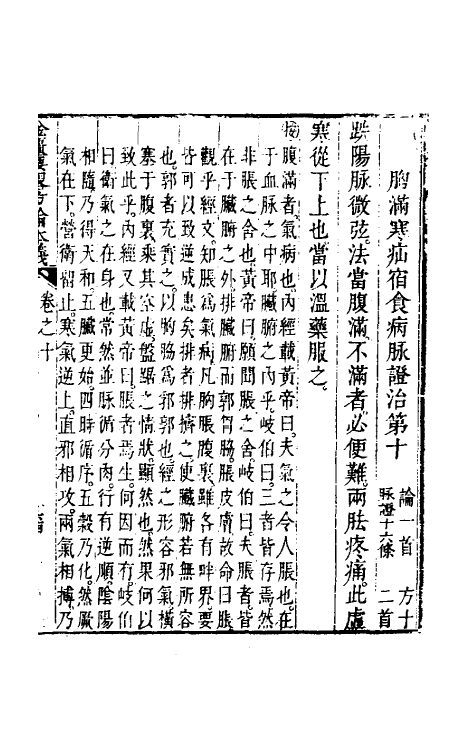 胸滿寒疝宿食病脉證治第十
論一首
脉證十六條
方十
二首
趺陽脉微弦。法當腹滿。不滿者。必便難。兩胠疼痛。此虛
寒從下上也。當以溫藥服之。
按腹滿者。氣病也。內經載黃帝曰。夫氣之令人脹也。在
于血脉之中耶。臟腑之內乎。岐伯曰。三者皆存焉。然
非脹之舍也。黃帝曰。願聞脹之舍。岐伯曰。夫脹者。皆
在于臟腑之外。排臟腑而郭胷脇。脹皮膚。故命曰脹
觀乎經文。知脹爲氣病。凡胸脹腹裏。雖各有畔界。要
皆可以致逆成患矣。排者排擠之。使臟腑若無所容
也。郭者充實之。以胸脇爲郭郭也。經之形容邪氣橫
塞于腹裏。乘其空虛。盤踞之情狀。顯然也。然果何以
致此乎。內經又載黃帝曰。脹者焉生。何因而有。岐伯
曰。衛氣之在身也。常然並脉循分肉。行有逆順。陰陽
相隨。乃得天和。五臟更始。四時循序。五穀乃化。然厥
氣在下。營衛留止。寒氣逆上。直邪相攻。兩氣相搏。乃
金匱要畧方論本義
卷之十